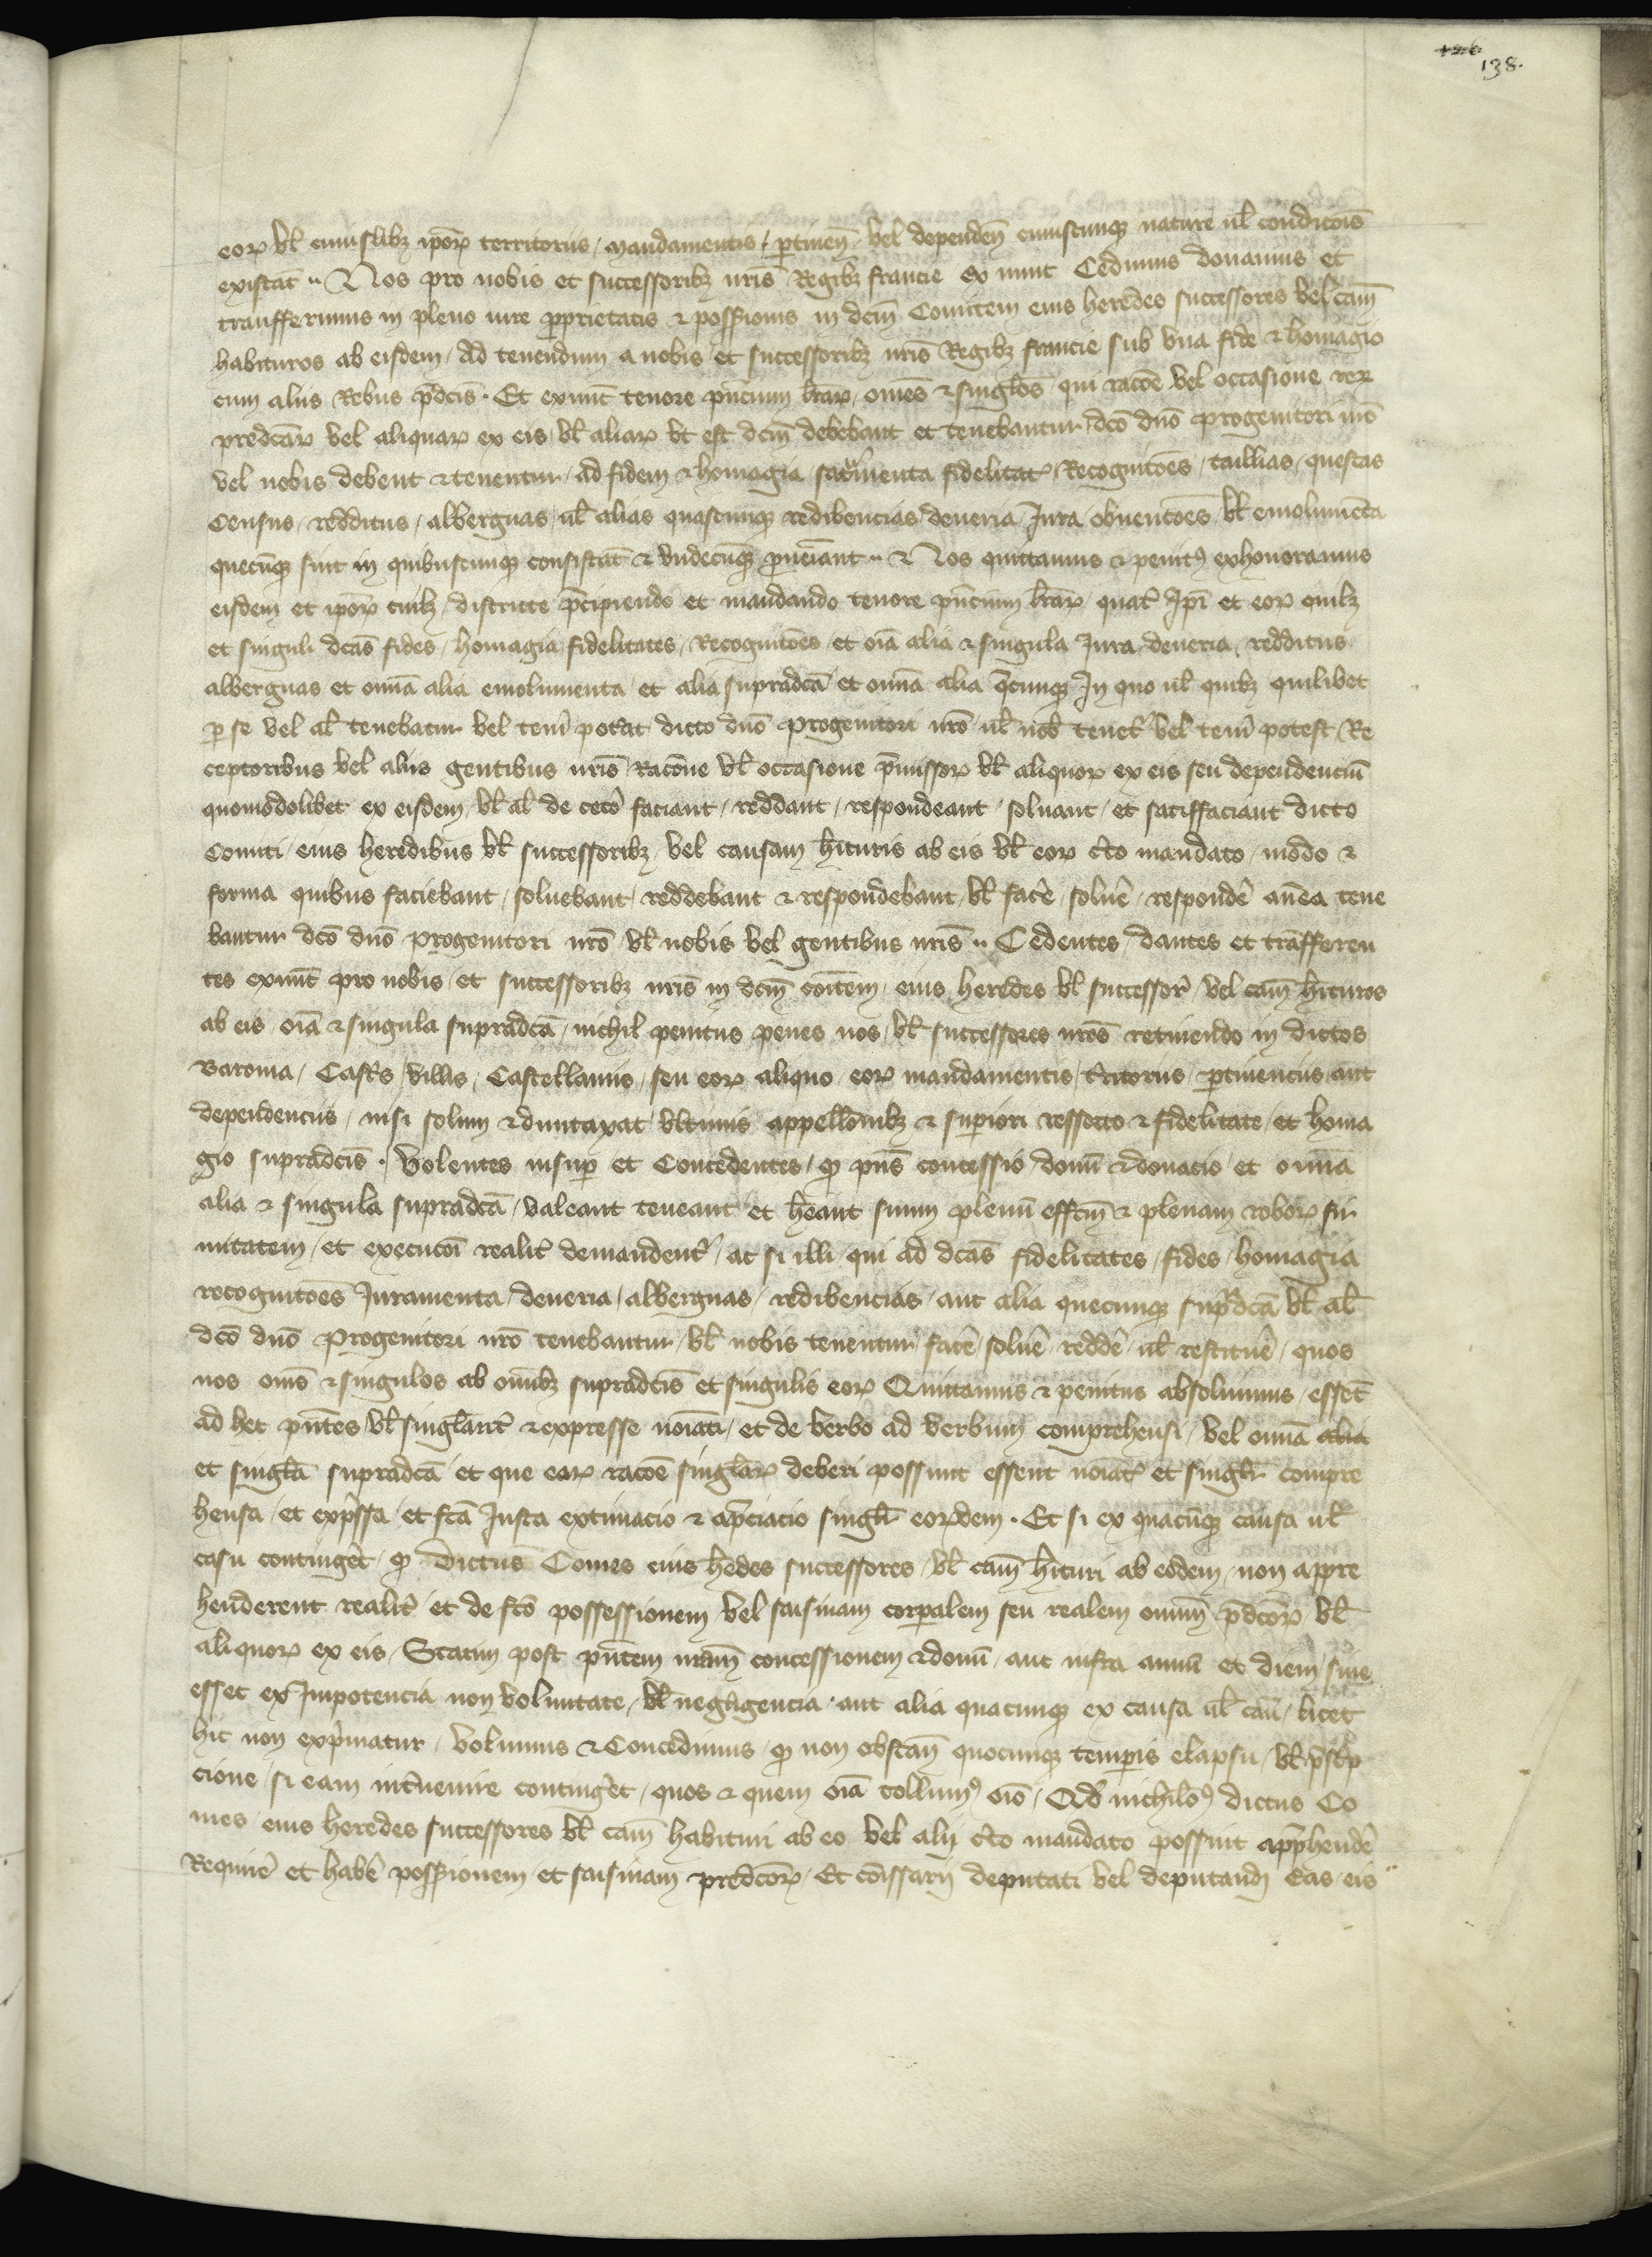 138.
eoꝝ vl̃ cuiuslibꝫ ipoꝝ territoriis / mandamentis / ꝑtineñ / vel dependeñ cuiuscunqꝫ nature ul̃ condicõis
existat̃ .. Nos pro nobis et successoribꝫ nr̃is Regibꝫ francie ex nunc Cedimus donamus et
transferimus in pleno iure ꝓprietatis ⁊ possessionis in dc̃m Comitem eius heredes successores vel cam̃
habituros ab eisdem / Ad tenendum a nobis et successoribꝫ nr̃is Regibꝫ francie sub vna fide ⁊ homagio
cum aliis Rebus p̃dcĩs . Et exnunc̃ tenore pñcium lr̃aꝝ / om̃es ⁊ singlõs / qui rac̃õe vel occasione reꝝ
predc̃aꝝ vel aliquaꝝ ex eis vl̃ aliaꝝ vt est dcm̃ debebant et tenebantur dc̃o dño progenitori nr̃o
vel nobis debent ⁊ tenentur / ad fidem ⁊ homagia / sacramenta fidelitat̃ / Recognic̃ões / taillias / questas
Census / redditus / alberguas / ul̃ alias quascunqꝫ redibencias / deueria / Jura / obuenc̃ões / vl̃ emolumẽta
quecũqꝫ sint in quibuscunqꝫ consistãt ⁊ vndecũqꝫ ꝓueniant .. ⁊ Nos quittamus ⁊ penitꝰ exhoneramus
eisdem et ipoꝝ cuilꝫ / districte p̃cipiendo et mandando tenore pñcium lr̃aꝝ / quat̃ Ip̃i et eoꝝ quilꝫ
et singuli dc̃as fides / homagia / fidelitates / Recognic̃ões / et oĩa alia ⁊ singula Jura / deueria / redditus
alberguas et om̃ia alia emolumenta / et alia supradc̃a / et om̃ia alia q̃cunqꝫ In quo ul̃ quibꝫ quilibet
ꝑ se vel al̃ tenebatur vel teni᷑ pot̃at dicto dño progenitori nr̃o / ul̃ nob̃ tenet᷑ vel teni᷑ potest / Re
ceptoribus vel aliis gentibus nr̃is / Rac̃one vl̃ occasione p̃missoꝝ vl̃ aliquoꝝ ex eis seu dependenciũ
quomodolibet ex eisdem / vl̃ al̃ de cet̃o faciant / reddant / respondeant / soluant / et satiffaciant dicto
Comiti / eius heredibus vl̃ successoribꝫ / vel causam h̃ituris ab eis vl̃ eoꝝ c̃to mandato / modo ⁊
forma quibus faciebant / soluebant / reddebant ⁊ respondebant / vl̃ fac̃e / solũe / respond̃e añea tene
bantur dc̃o dño progenitori nr̃o vl̃ nobis vel gentibus nr̃is .. Cedentes / dantes et trãsferen
tes exnunc̃ pro nobis / et successoribꝫ nr̃is in dc̃m coĩtem / eius heredes vl̃ successor̃ / vel cam̃ h̃ituros
ab eis oĩa ⁊ singula supradc̃a / nichil penitus penes nos / vl̃ successores nr̃os retinendo in dictos
Baronia / Castr̃s / villis / Castellaniis / seu eoꝝ aliquo / eoꝝ mandamentis / t̃ritoriis / ꝑtinenciis / aut
dependenciis / nisi solum ⁊ duntaxat / vltimis appellõnibꝫ ⁊ suꝑiori ressorto ⁊ fidelitate / et homa
gio supradc̃is . Volentes insuꝑ et Concedentes / ꝙ pñs concessio / donũ ⁊ donacio / et om̃ia
alia ⁊ singula supradc̃a / valeant teneant et h̃eant suum plenũ effc̃m ⁊ plenam roboꝝ fir
mitatem / et execuc̃oi realit̃ demandent᷑ / ac si illi / qui ad dc̃as fidelitates / fides / homagia
recognic̃ões Juramenta / deueria / alberguas / redibencias / aut alia quecunqꝫ supr̃dc̃a vl̃ al̃
dc̃o dño progenitori nr̃o tenebantur / vl̃ nobis tenentur fac̃e / solũe / redd̃e / ul̃ restitũe / quos
nos om̃s ⁊ singulos ab om̃ibꝫ supradc̃is et singulis eoꝝ Quittamus ⁊ penitus absoluimus / essẽt
ad hec pñtes vl̃ singlãrit̃ ⁊ expresse noĩati / et de verbo ad verbum comprehensi / vel om̃ia alia
et singl̃a supradc̃a et que eoꝝ rac̃õe singlãꝝ deberi possunt essent noĩat̃ et singl̃r compre
hensa / et exp̃ssa / et fc̃a Justa extimacio ⁊ app̃ciacio singl̃r eoꝝdem . Et si ex quacũqꝫ causa ul̃
casu conting̃et / ꝙ Dictus Comes eius h̃edes successores / vl̃ cam̃ h̃ituri ab eodem / non appre
henderent realit̃ et de fc̃o possessionem / vel saisinam corꝑalem seu realem omniũ p̃dc̃oꝝ / vl̃
aliquoꝝ ex eis / Statim post pñtem nr̃am concessionem ⁊ donũ / aut infra annũ et diem / siue
esset ex Impotencia non voluntate / vl̃ negligencia / aut alia quacunqꝫ ex causa ul̃ cañ / licet
hic non exp̃matur / Volumus ⁊ Concedimus / ꝙ non obstañ quocunqꝫ temꝑis elapsu / vl̃ p̃sc̃p
cione / si eam int̃uenire conting̃et / quos ⁊ quem oĩa tollimꝰ oĩo / Qd̃ nichilõꝰ dictus Co
mes / eius heredes successores vl̃ cam̃ habituri ab eo vel alij c̃to mandato possint app̃hend̃e
Requir̃e et hab̃e possessionem / et saisinam predc̃oꝝ / Et com̃issarij deputati vel deputandi Eas eis